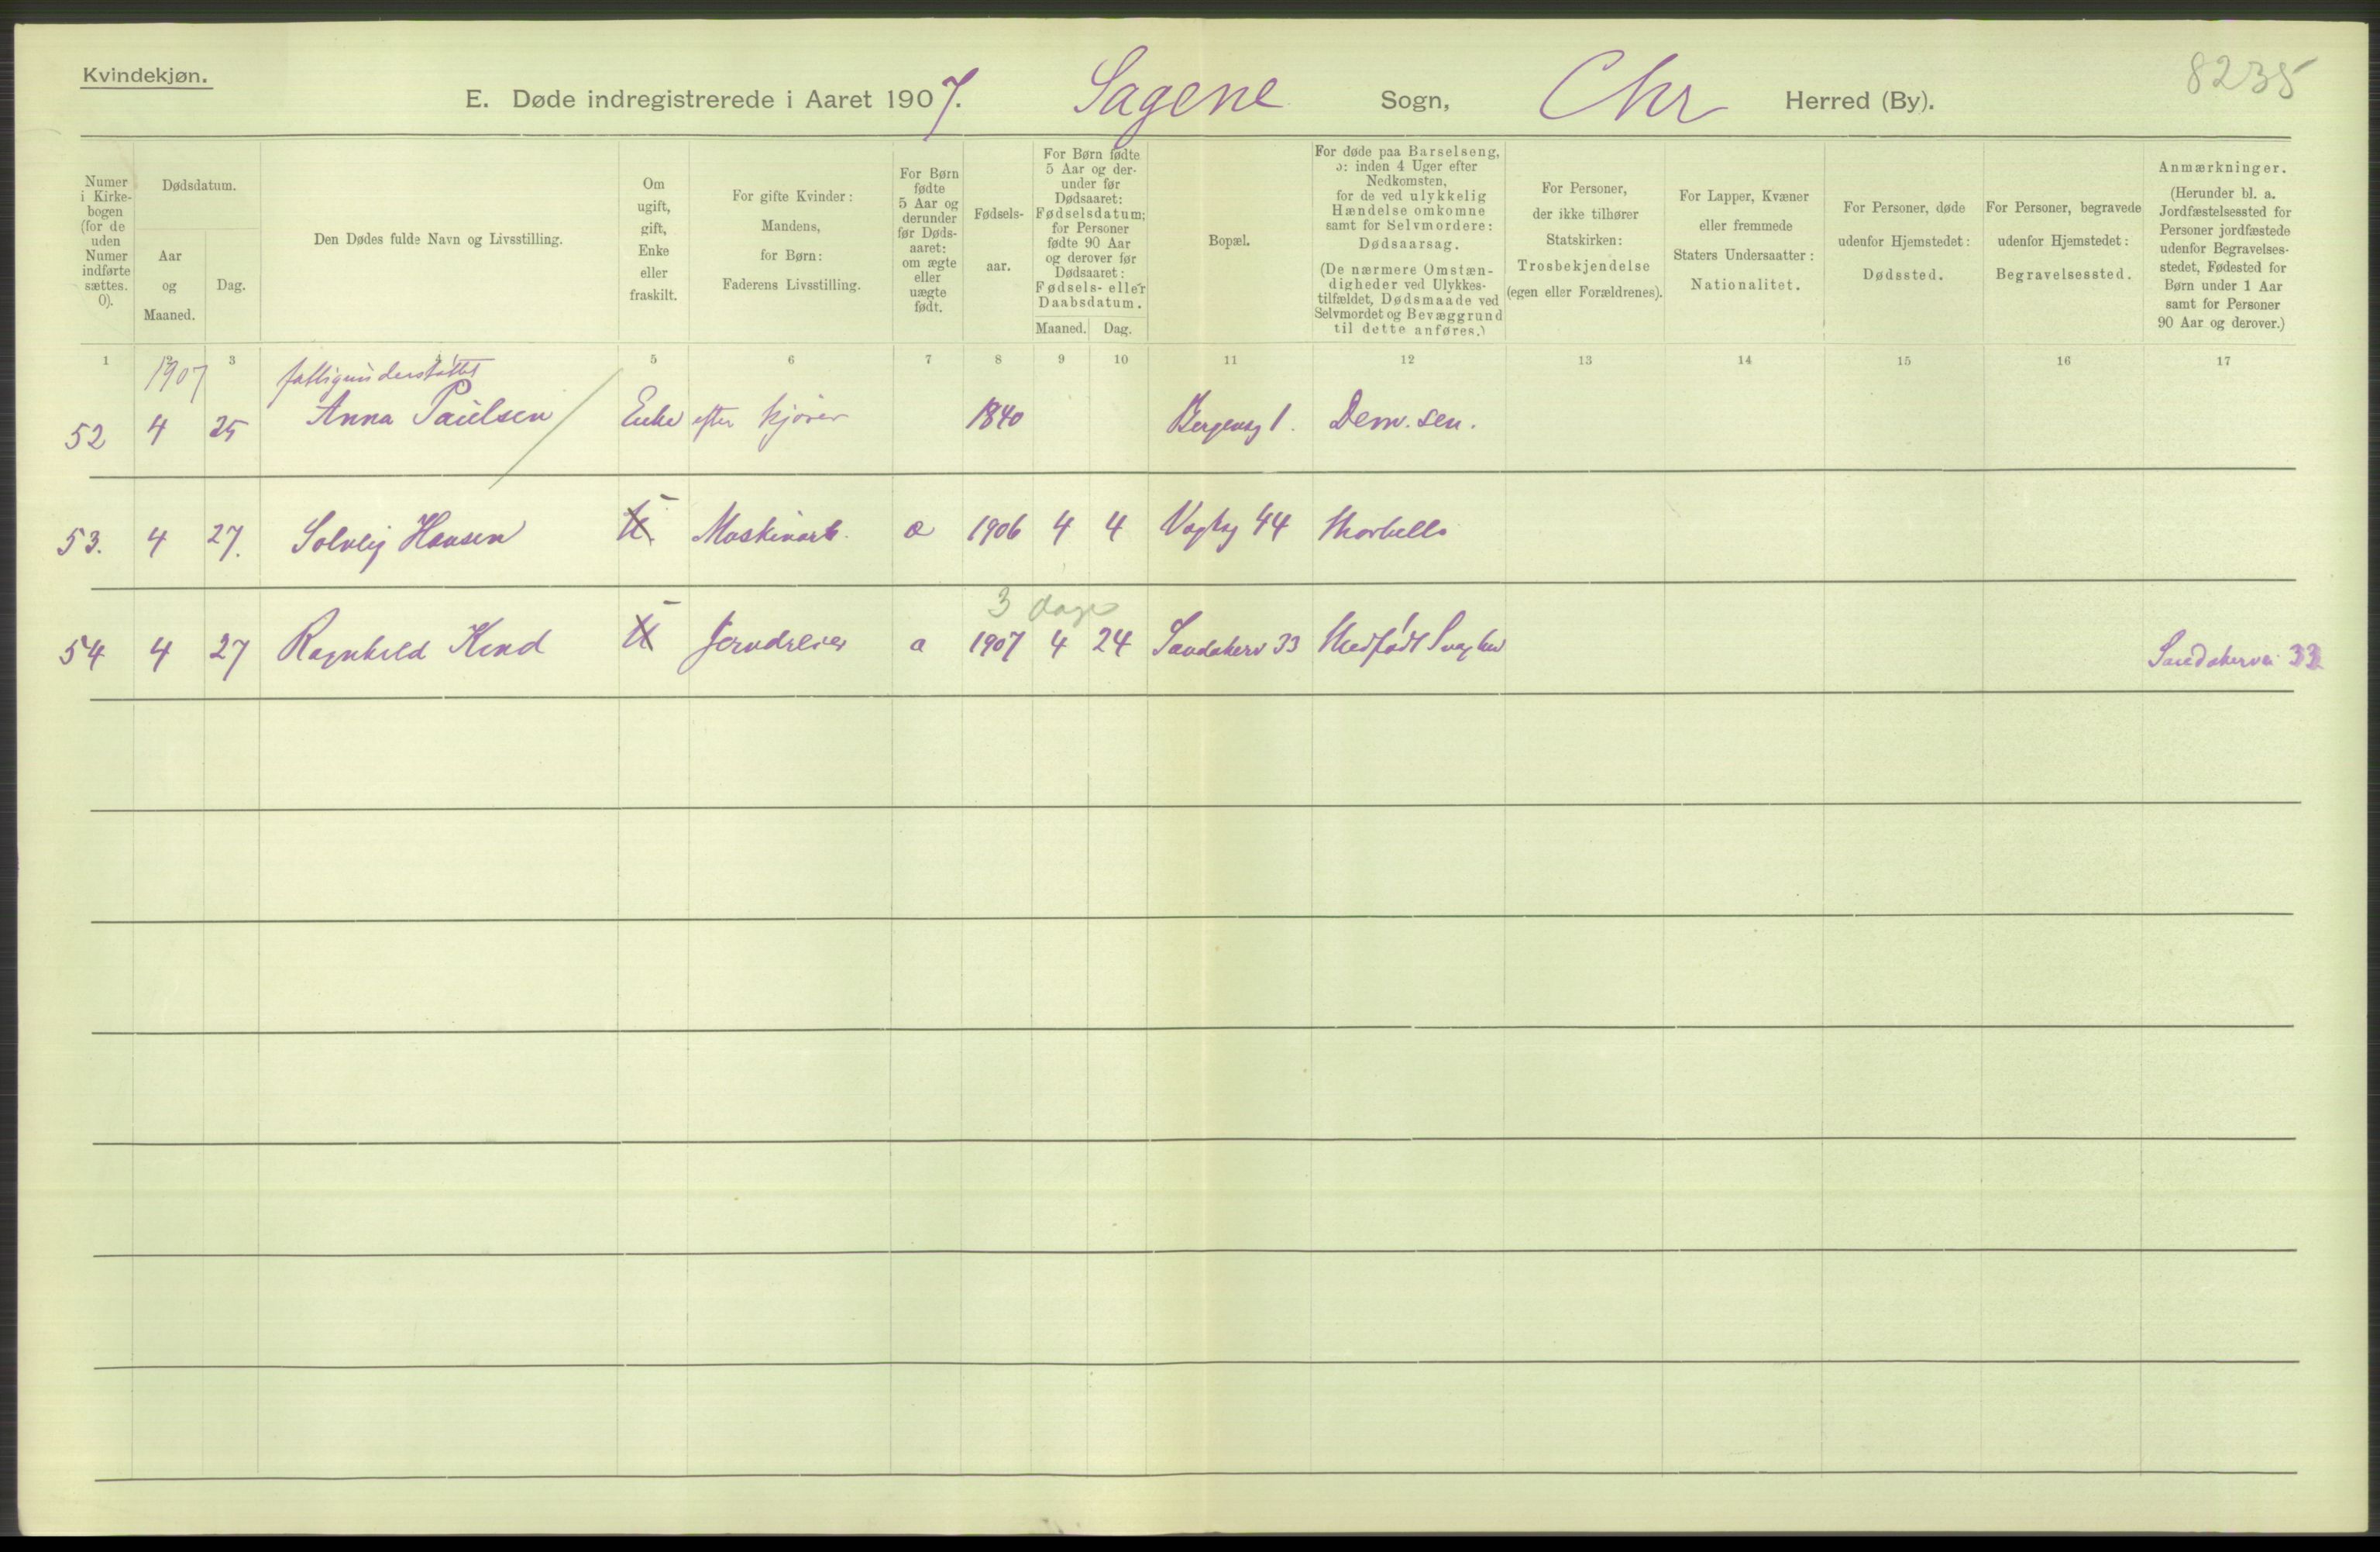 Kvindekjøn.
E. Døde indregistrerede i Aaret 1907. Sagene Sogn, Chr Herred (By).
8235
Numer i Kirke-bogen (for de uden Numer indførte sættes. 0).
Dødsdatum.
Aar og Maaned.
Dag.
Den Dødes fulde Navn og Livsstilling.
Om ugift, gift, Enke eller fraskilt.
For gifte Kvinder: Mandens, for Børn: Faderens Livsstilling.
For Børn fødte 5 Aar og derunder før Døds-aaret: om ægte eller uægte født.
Fødsels-aar.
For Børn fødte 5 Aar og der-under før Dødsaaret: Fødselsdatum; for Personer fødte 90 Aar og derover før Dødsaaret: Fødsels- eller Daabsdatum.
Maaned. Dag.
Bopæl.
For døde paa Barselseng, ɔ: inden 4 Uger efter Nedkomsten, for de ved ulykkelig Hændelse omkomne samt for Selvmordere: Dødsaarsag. (De nærmere Omstæn-digheder ved Ulykkes-tilfældet, Dødsmaade ved Selvmordet og Bevæggrund til dette anføres.)
For Personer, der ikke tilhører Statskirken: Trosbekjendelse (egen eller Forældrenes).
For Lapper, Kvæner eller fremmede Staters Undersaatter: Nationalitet.
For Personer, døde udenfor Hjemstedet: Dødssted.
For Personer, begravede udenfor Hjemstedet: Begravelsessted.
Anmærkninger. (Herunder bl. a. Jordfæstelsessted for Personer jordfæstede udenfor Begravelses-stedet, Fødested for Børn under 1 Aar samt for Personer 90 Aar og derover.)
1 2 3 4 5 6 7 8 9 10 11 12 13 14 15 16 17
1907 fattigunderstøttet
52 4 25 Anna Paulsen Enke efter kjører 1840 Bergensg 1. Dem. sen.
53. 4 27. Solveig Hansen U. Maskinarb. æ 1906 4 4 Vogtsg 44 Morbilli
3 dage
54 4 27 Ragnhild Kind U Jerndreier æ 1907 4 24 Sandakerv 33 Medfødt Svaghed Sandakervei 33